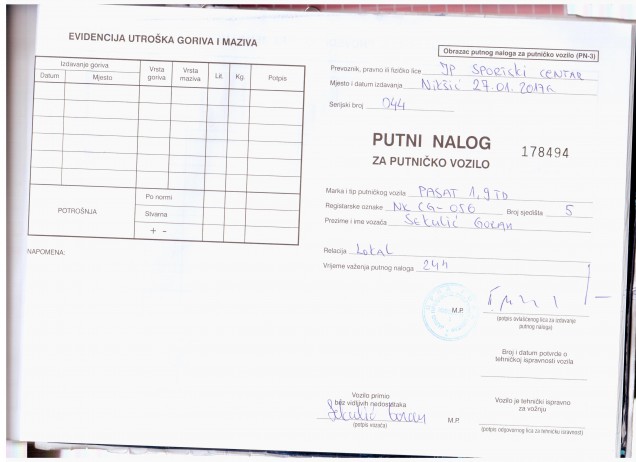 EVIDENCIJA UTROŠKA GORIVA I MAZIVA
Izdavanje goriva
Datum
Mjesto
Vrsta goriva
Vrsta maziva
Lit.
Kg.
Potpis
POTROŠNJA
Po normi
Stvarna
+ -
NAPOMENA:
Obrazac putnog naloga za putničko vozilo (PN-3)
Prevoznik, pravno ili fizičko lice JP SPORTSKI CENTAR
Mjesto i datum izdavanja Nikšić 27.01.2017G
Serijski broj 044
PUTNI NALOG
ZA PUTNIČKO VOZILO
178494
Marka i tip putničkog vozila PASAT 1,9TD
Registarske oznake NK CG-056 Broj sjedišta 5
Prezime i ime vozača SEKULIĆ GORAN
Relacija LOKAL
Vrijeme važenja putnog naloga 24h
M.P.
(potpis ovlašćenog lica za izdavanje
putnog naloga)
Broj i datum potvrde o
tehničkoj ispravnosti vozila
Vozilo primio
bez vidljivih nedostataka
Sekulić Goran
(potpis vozača)
M.P.
Vozilo je tehnički ispravno
za vožnju
(potpis odgovornog lica za tehničku ispravnost)